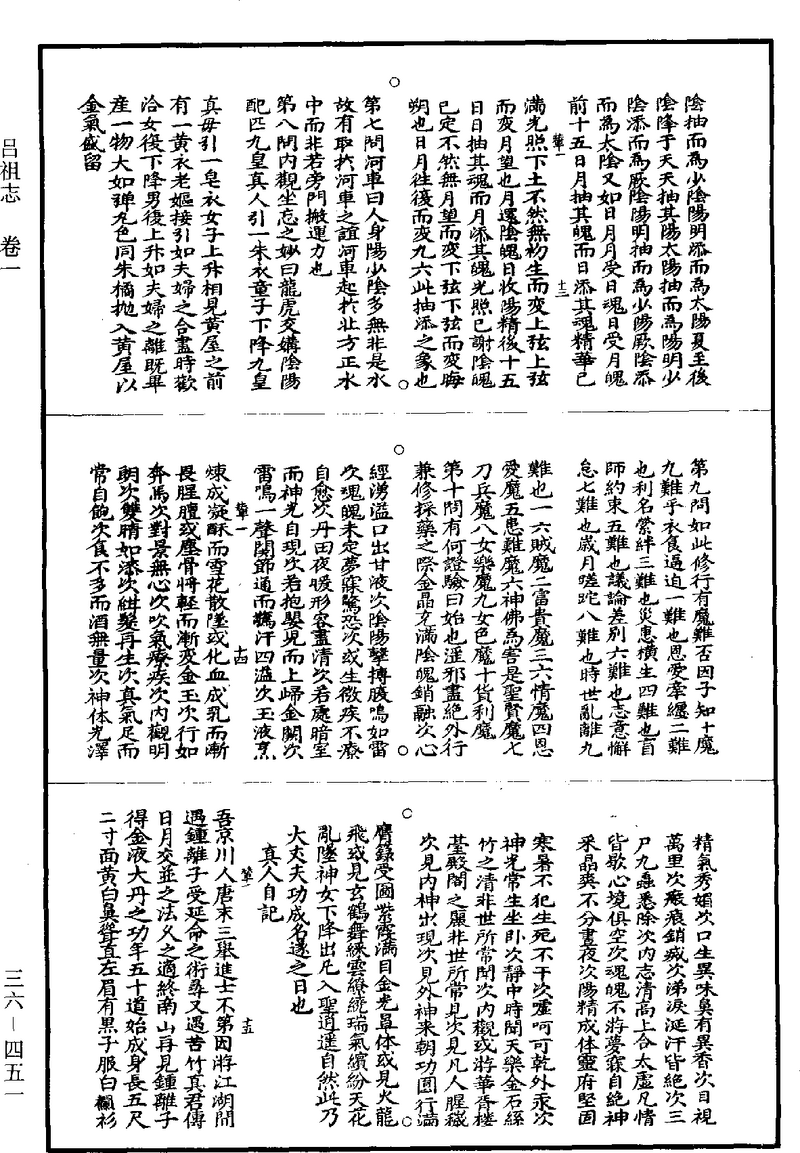 陰抽而為少陰陽明添而為太陽夏至後
陰降于天天抽其陽太陽抽而為陽明少
陰添而為厥陰陽明抽而為少陽厥陰添
而為太陰又如日月月受日魂日受月魄
前十五日月抽其魄而日添其魂精華已
滿光照下土不然無初生而変上弦上弦
而変月望也月還陰魄日收陽精後十五
日日抽其魂而月添其魄光照已謝陰魄
已定不然無月望而変下弦下弦而変晦
朔也日月往復而変九六此抽添之象也
第七問河車曰人身陽少陰多無非是水
故有取於河車之誼河車起於北方正水
中而非若旁門搬運力也
第八問內觀坐忘之妙曰龍虎交媾陰陽
配匹九皇真人引一朱衣童子下降九皇
真母引一皂衣女子上升相見黄屋之前
有一黄衣老嫗接引如夫婦之合盡時歡
洽女復下降男復上升如夫婦之離既畢
産一物大如弹丸色同朱橘抛入黄屋以
金氣盛留
第九問如此修行有魔難否因子知十魔
九難乎衣食逼迫一難也恩愛牽纏二難
也利名縈絆三難也災患橫生四難也盲
師約束五難也議論差别六難也志意懈
怠七難也歲月蹉跎八難也時世亂離九
難也一六賊魔二富貴魔三六情魔四恩
愛魔五患難魔六神佛為害是聖賢魔七
刀兵魔八女樂魔九女色魔十貨利魔
第十問有何證驗曰始也滛邪盡絶外行
兼修採藥之際金晶充滿陰魄銷融次心
經湧溢口出甘液次陰陽擊搏腹鳴如雷
次魂魄未定夢寐驚恐次或生微疾不療
自愈次丹田夜暖形容晝清次若處暗室
而神光自現次若抱嬰兒而上歸金闕次
雷鳴一聲關節通而驚汗四溢次玉液烹
煉成凝酥而雪花散墜或化血成乳而漸
畏腥膻或塵骨將軽而漸変金玉次行如
奔馬次對景無心次吹氣療疾次內觀明
朗次雙睛如漆次紺髮再生次真氣足而
常自飽次食不多而酒無量次神体光澤
精氣秀媚次口生異味鼻有異香次目視
萬里次瘢痕銷滅次涕淚涎汗皆絶次三
尸九蟲悉除次內志清高上合太虛凡情
皆歇心境俱空次魂魄不游夢寐自絶神
采晶爽不分晝夜次陽精成体靈府堅固
寒暑不犯生死不干次噓呵可乾外汞次
神光常生坐卧次靜中時聞天樂金石絲
竹之清非世所常聞次內觀或游華胥樓
臺殿閣之麗非世所常見次見凡人腥穢
次見內神出現次見外神来朝功圓行滿
膺籙受圖紫霞滿目金光罩体或見火龍
飛或見玄鶴舞綵雲繚繞瑞氣繽紛天花
亂墜神女下降出凡入聖逍遥自然此乃
大丈夫功成名遂之日也
真人自記
吾京川人唐末三舉進士不第因游江湖間
遇鍾離子受延命之術尋又遇苦竹真君傳
日月交並之法久之適終南山再見鍾離子
得金液大丹之功年五十道始成身長五尺
二寸面黄白鼻聳直左眉有黒子服白襴衫
吕祖志　卷一
三六—四五一
華一　十三
華一　十四
華一　十五